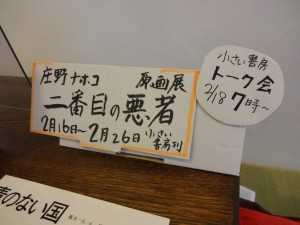 庄野ナホコ 原画展
二番目の悪者
2月16日～2月26日 小さい書房刊
小さい書房
トーク会
2/18 7時～
のない国